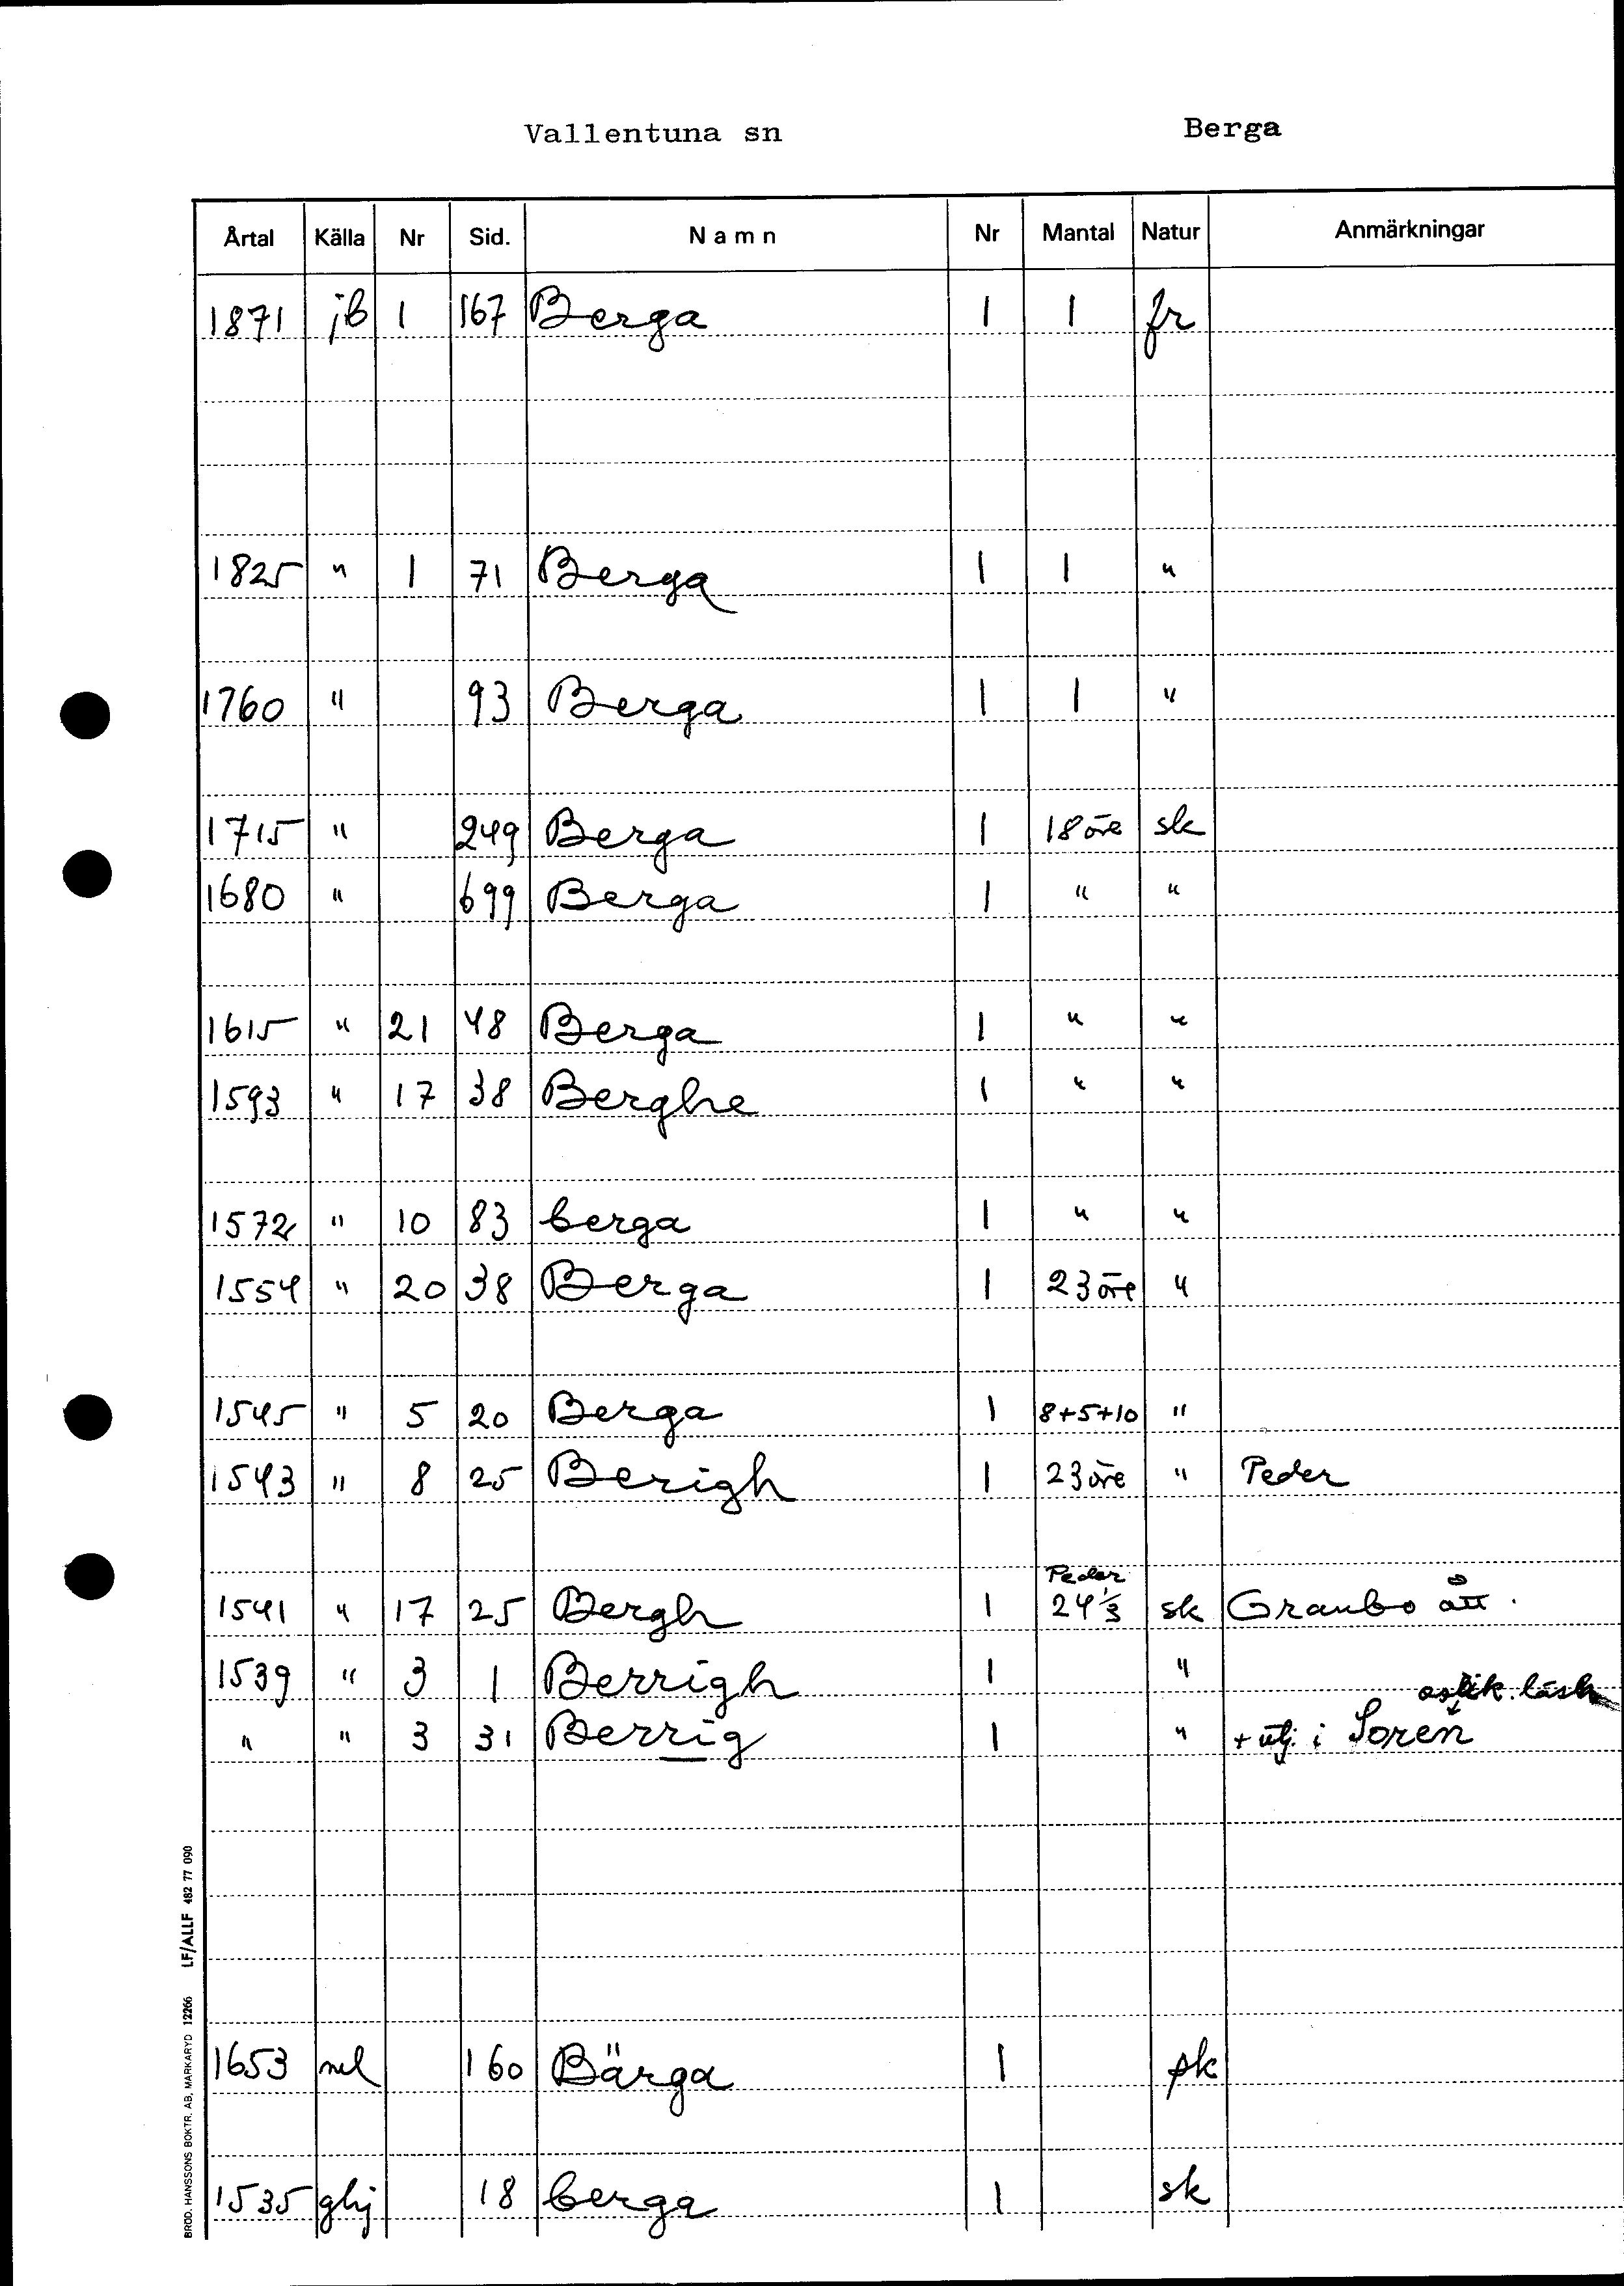 Vallentuna sn Berga
Årtal Källa Nr Sid. Namn Nr Mantal Natur Anmärkningar
1871 jb 1 167 Berga 1 1 fr
1825 " 1 71 Berga 1 1 "
1760 " 93 Berga 1 1 "
1715 " 249 Berga 1 18 öre sk
1680 " 699 Berga 1 " "
1615 " 21 48 Berga 1 " "
1593 " 17 38 Berghe 1 " "
1572 " 10 83 berga 1 " "
1554 " 20 38 Berga 1 23 öre "
1545 " 5 20 Berga 1 8+5+10 "
1543 " 8 25 Berigh 1 23 öre " Peder
Peder
1541 " 17 25 Bergh 1 24 1/3 sk Granbo ått.
1539 " 3 1 Berrigh 1 "
" " 3 31 Berrig 1 " + utj. i Soren
1653 ml 160 Bärga 1 sk
1535 ghj 18 berga 1 sk
BROD. HANSSONS BOKTR. AB, MARKARYD 12266 LF/ALLF 482 77 090